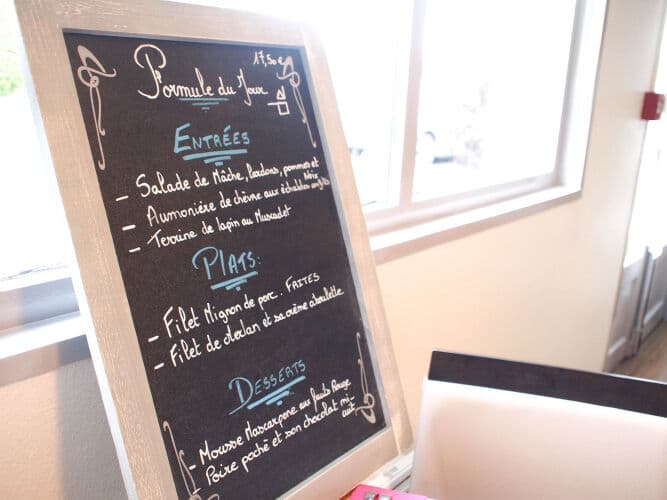 Formule du Jour 17,50€
ENTRÉES
- Salade de Mâche, lardons, pommes et Noix
- Aumonière de chèvre aux échalotes confites
- Terrine de lapin au Muscadet
PLATS:
- Filet Mignon de porc. FRITES
- Filet de Merlan et sa crème ciboulette
DESSERTS
- Mousse Mascarpone aux fruits Rouge
Poire poché et son chocolat mi-
cuit